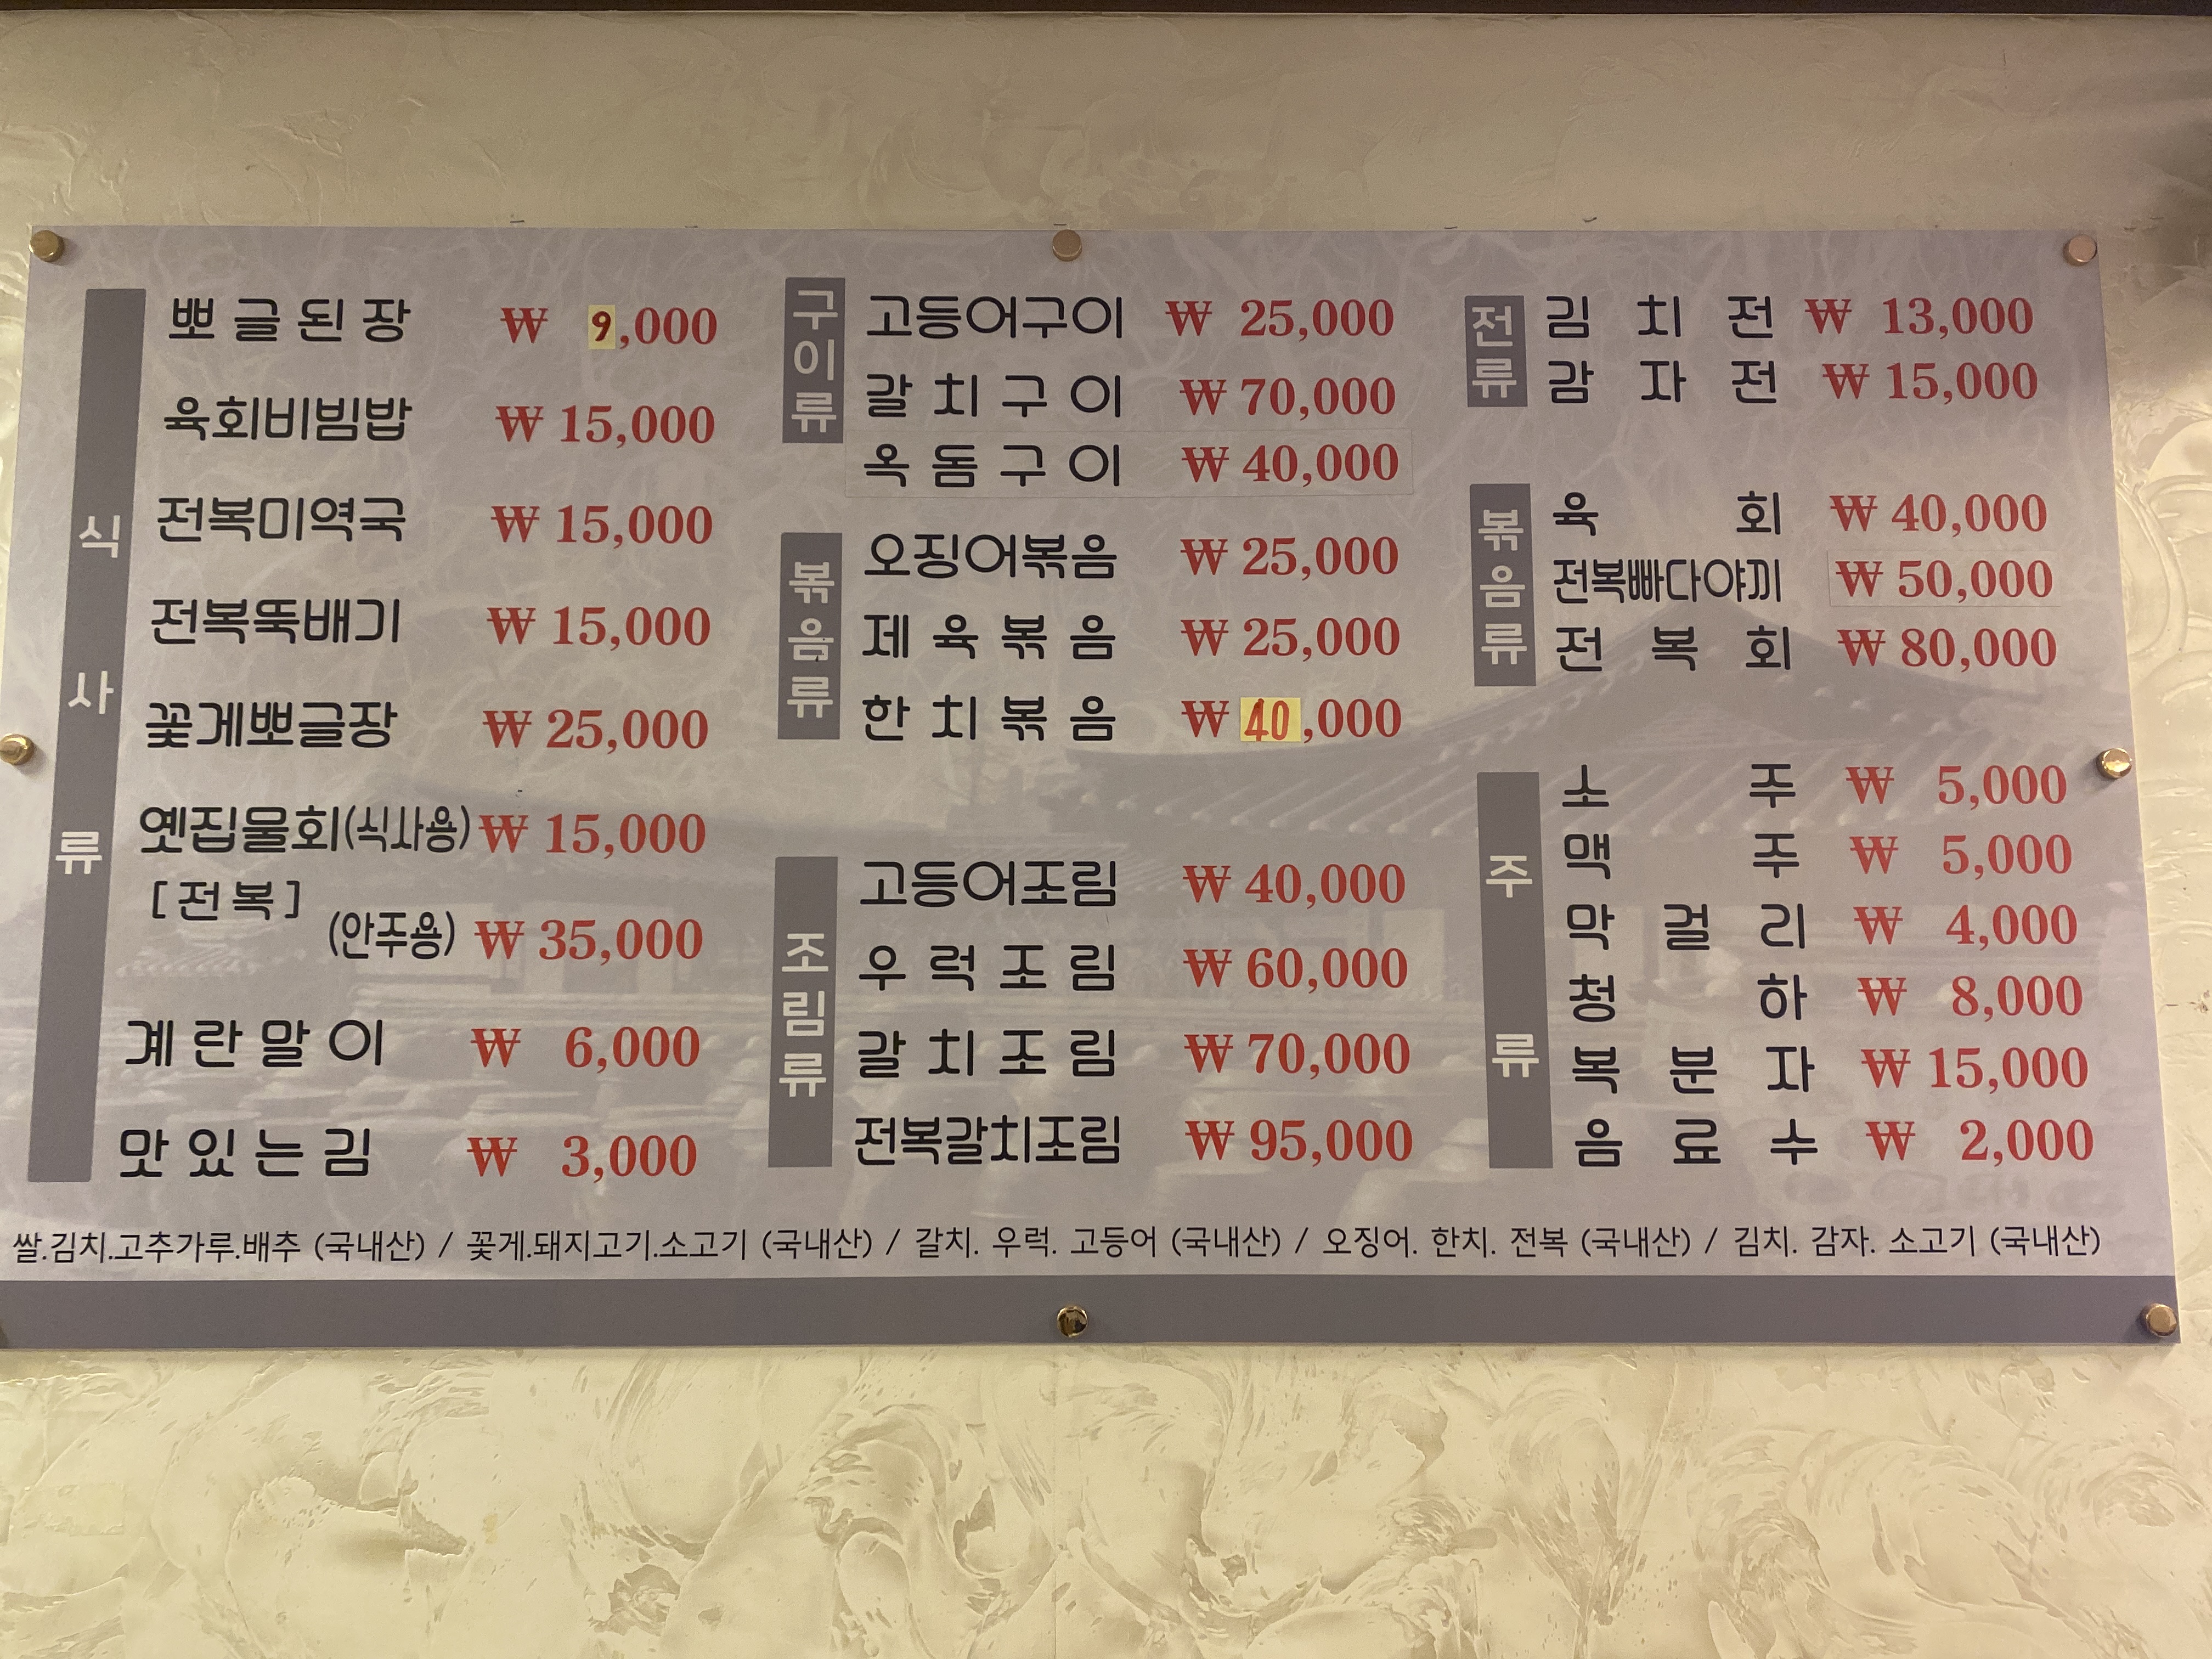 식사류
뽀글된장 ₩ 9,000
육회비빔밥 ₩ 15,000
전복미역국 ₩ 15,000
전복뚝배기 ₩ 15,000
꽃게뽀글장 ₩ 25,000
옛집물회(식사용) ₩ 15,000
[전복]
(안주용) ₩ 35,000
계란말이 ₩ 6,000
맛있는김 ₩ 3,000
구이류
고등어구이 ₩ 25,000
갈치구이 ₩ 70,000
옥돔구이 ₩ 40,000
볶음류
오징어볶음 ₩ 25,000
제육볶음 ₩ 25,000
한치볶음 ₩ 40,000
조림류
고등어조림 ₩ 40,000
우럭조림 ₩ 60,000
갈치조림 ₩ 70,000
전복갈치조림 ₩ 95,000
전류
김치전 ₩ 13,000
감자전 ₩ 15,000
볶음류
육회 ₩ 40,000
전복빠다야끼 ₩ 50,000
전복회 ₩ 80,000
주류
소주 ₩ 5,000
맥주 ₩ 5,000
막걸리 ₩ 4,000
청하 ₩ 8,000
복분자 ₩ 15,000
음료수 ₩ 2,000
쌀.김치.고추가루.배추 (국내산) / 꽃게.돼지고기.소고기 (국내산) / 갈치. 우럭. 고등어 (국내산) / 오징어. 한치. 전복 (국내산) / 김치. 감자. 소고기 (국내산)